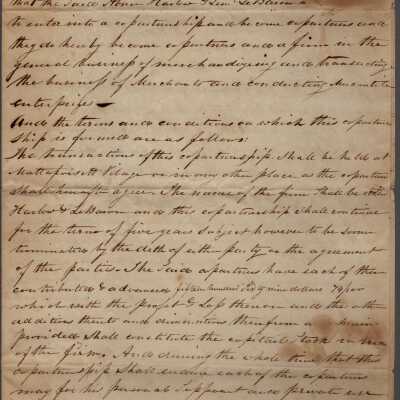 that the said Abner Harlow & Lem. LeBaron
to enter into a copartnership and become copartners and
they do hereby become copartners and a firm in the
general business of merchandising and transacting
the business of Merchants and conducting Mercantile
enterprises —
And the terms and conditions on which this copartner
ship is formed are as follows:
The transactions of this copartnership shall be held at
Mattapoisett Village or in any other place as the copartners
shall hereafter agree. The name of the firm shall be
Harlow & LeBaron and this copartnership shall continue
for the term of five years subject however to be soon
terminated by the death of either party or the agreement
of the parties. The said copartners have each of them
contributed & advanced fifteen hundred sixty nine dollars 79/100
which with the profit & loss thereon and the other
additions thereto and diminutions therefrom
provided shall constitute the capital stock in trade
of the firm. And during the whole time that this
copartnership shall endure each of the copartners
may for his personal support and private use